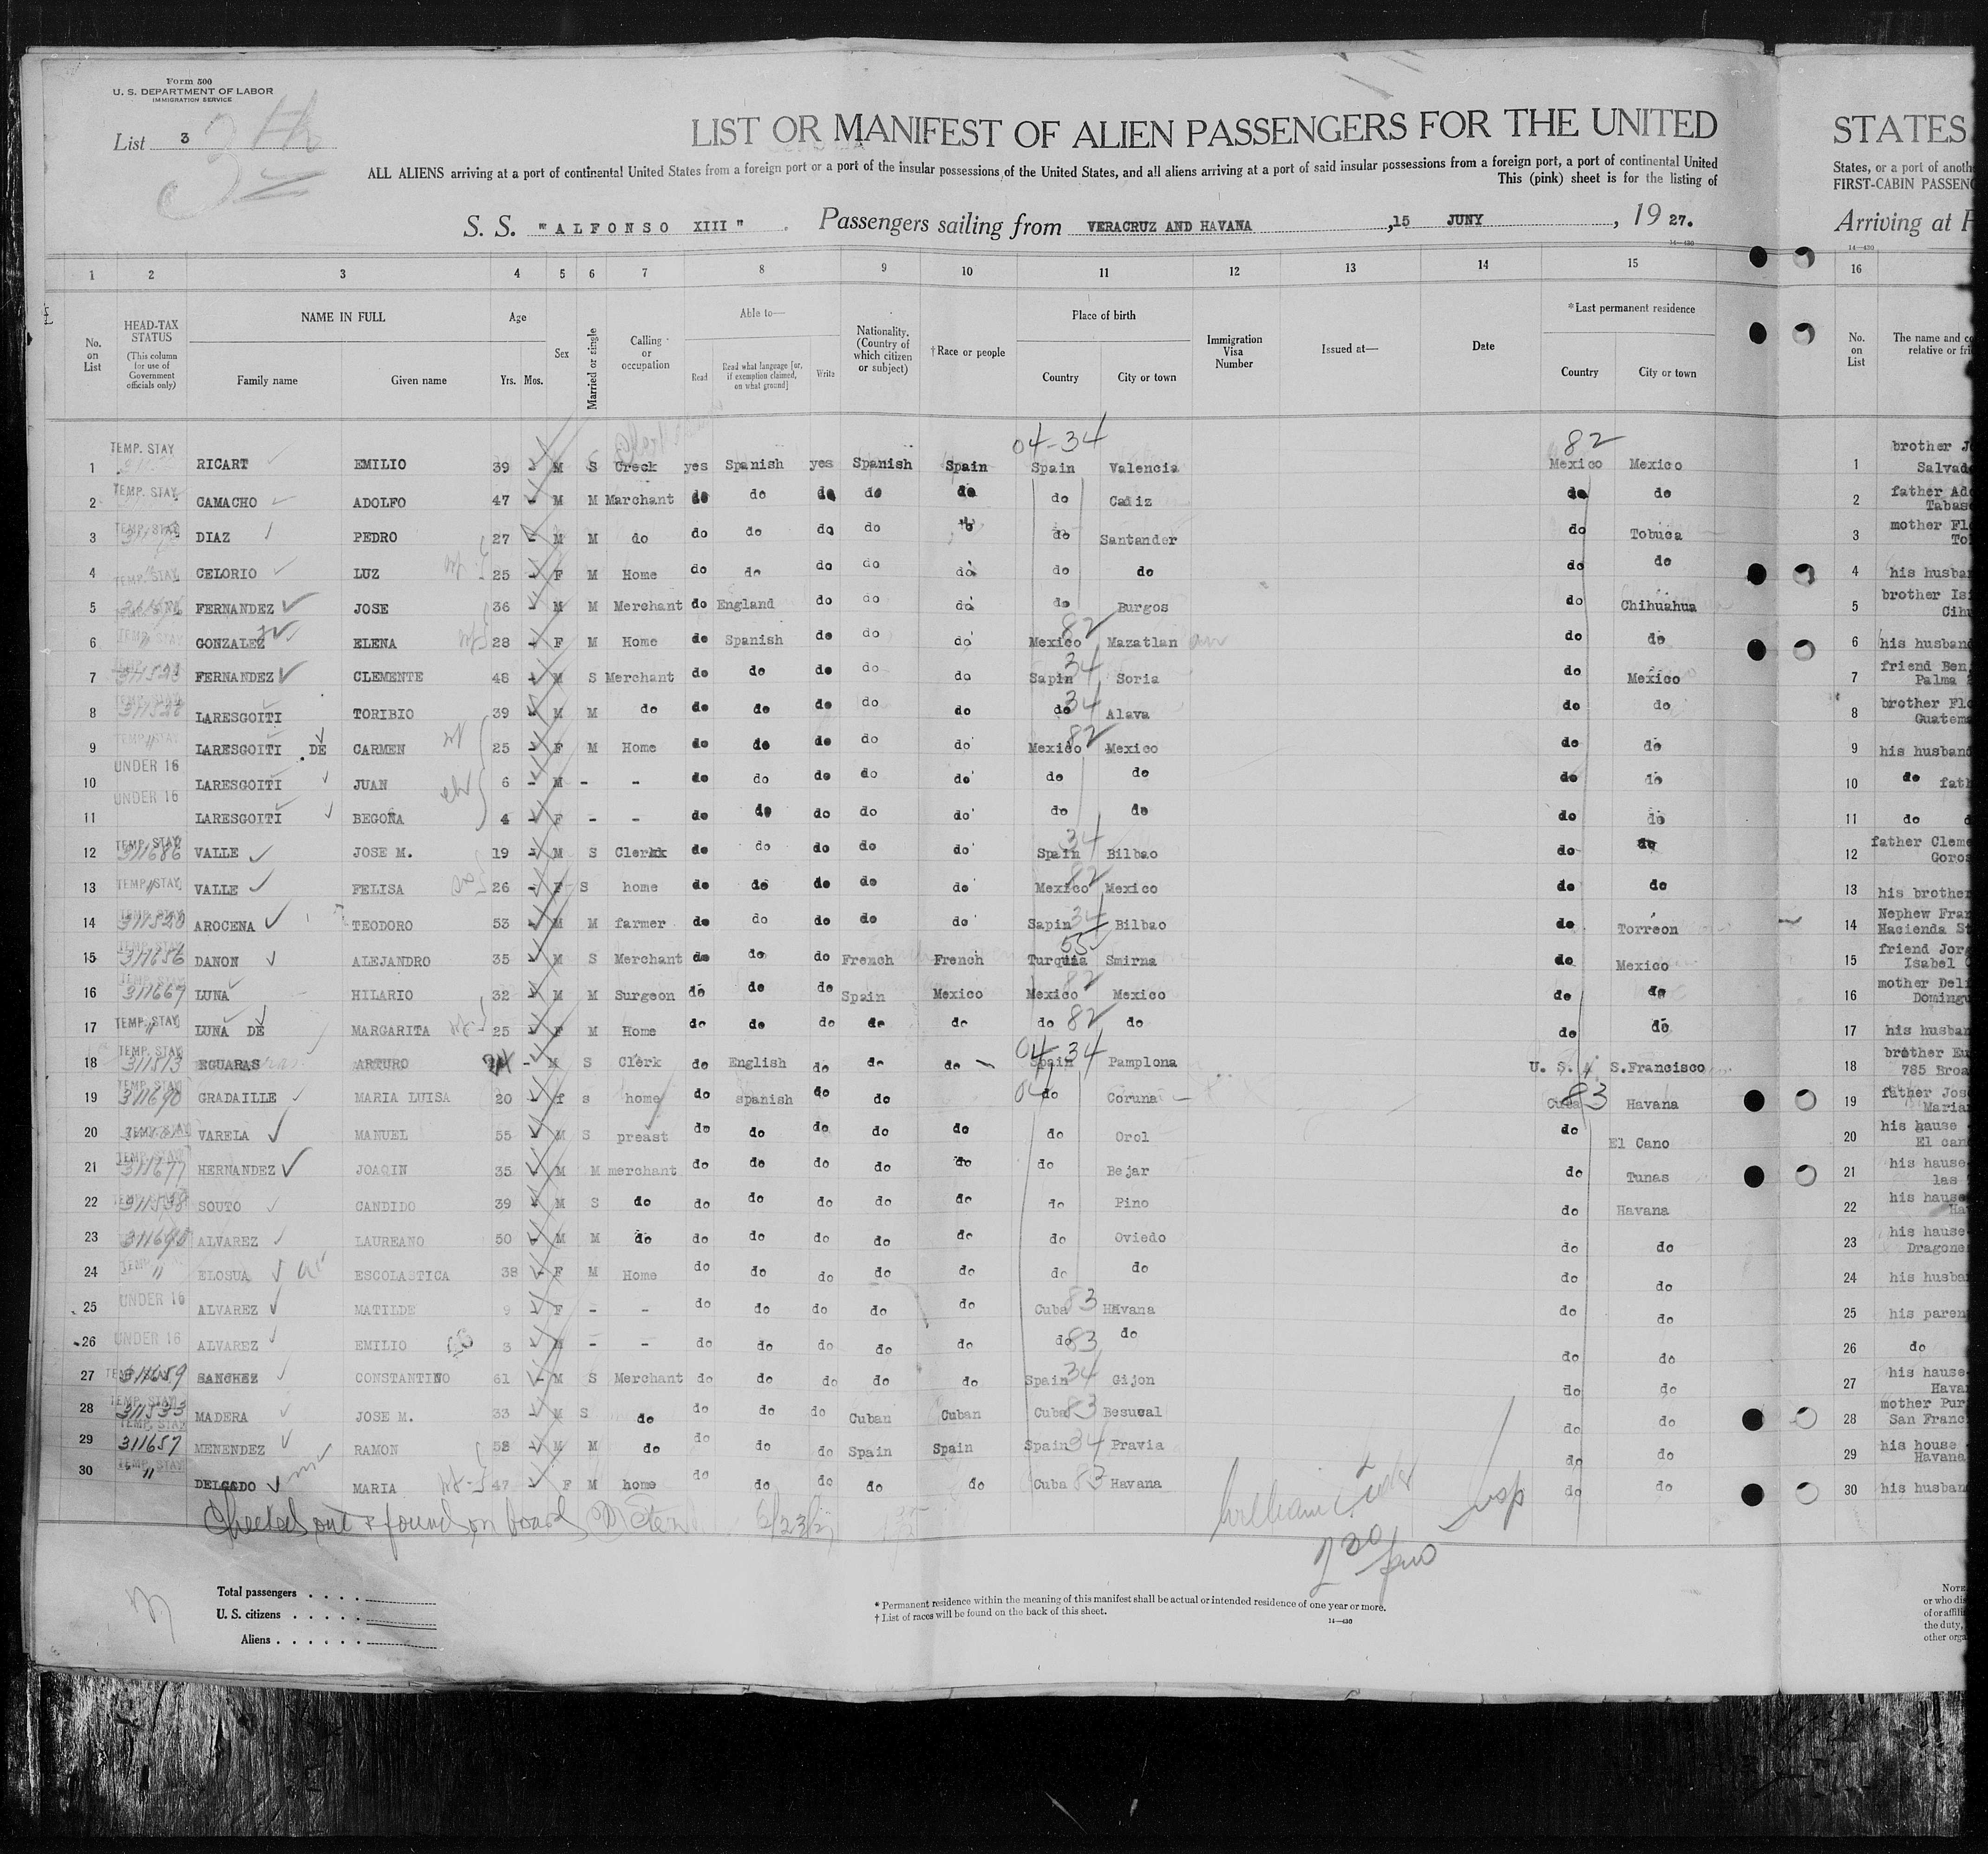 Form 500
U. S. DEPARTMENT OF LABOR
IMMIGRATION SERVICE
List 3
3rd
LIST OR MANIFEST OF ALIEN PASSENGERS FOR THE UNITED
STATES
ALL ALIENS arriving at a port of continental United States from a foreign port or a port of the insular possessions of the United States, and all aliens arriving at a port of said insular possessions from a foreign port, a port of continental United
States, or a port of anoth
This (pink) sheet is for the listing of
FIRST-CABIN PASSENG
S. S. "ALFONSO XIII" . Passengers sailing from VERACRUZ AND HAVANA ,15 JUNY , 19 27.
Arriving at
14—430
14—430
1 2 3 4 5 6 7 8 9 10 11 12 13 14 15 16
No. on List
HEAD-TAX STATUS
(This column for use of Government officials only)
NAME IN FULL
Family name
Given name
Age
Yrs. Mos.
Sex
Married or single
Calling or occupation
Able to—
Read
Read what language [or, if exemption claimed, on what ground]
Write
Nationality. (Country of which citizen or subject)
†Race or people
Place of birth
Country
City or town
Immigration Visa Number
Issued at—
Date
*Last permanent residence
Country
City or town
No. on List
The name and co
relative or fri
04-34 82
1 TEMP. STAY RICART EMILIO 39 - M S Creck yes Spanish yes Spanish Spain Spain Valencia Mexico Mexico 1 brother J Salvad
2 TEMP. STAY CAMACHO ADOLFO 47 - M M Marchant do do do do do do Cadiz do do 2 father Ado Tabas
3 TEMP. STAY DIAZ PEDRO 27 - M M do do do do do do do Santander do Tobuca 3 mother Flo To
4 TEMP. STAY CELORIO LUZ 25 - F M Home do do do do do do do do do 4 his husba
5 FERNANDEZ JOSE 36 - M M Merchant do England do do do do Burgos do Chihuahua 5 brother Is Cih
6 TEMP. STAY GONZALEZ ELENA 28 - F M Home do Spanish do do do Mexico 82 Mazatlan do do 6 his husband
7 311528 FERNANDEZ CLEMENTE 48 - M S Merchant do do do do do Sapin 34 Soria do Mexico 7 friend Ben Palma
8 LARESGOITI TORIBIO 39 - M M do do do do do do do 34 Alava do do 8 brother Flo Guatem
9 TEMP. STAY LARESGOITI DE CARMEN 25 - F M Home do do do do do Mexico 82 Mexico do do 9 his husband
10 UNDER 16 LARESGOITI JUAN 6 - M - - do do do do do do do do do 10 do fath
11 UNDER 16 LARESGOITI BEGOÑA 4 - F - - do do do do do do do do do 11 do d
12 TEMP. STAY 311686 VALLE JOSE M. 19 - M S Clerkk do do do do do Spain 34 Bilbao do do 12 father Cleme Goros
13 TEMP. STAY " VALLE FELISA 26 - F S home do do do do do Mexico 82 Mexico do do 13 his brother
14 311520 AROCENA TEODORO 53 - M M farmer do do do do do Sapin 34 Bilbao do Torreon 14 Nephew Fran Hacienda St
15 TEMP. STAY 311656 DANON ALEJANDRO 35 - M S Merchant do do do French French Turquia 55 Smirna do Mexico 15 friend Jorg Isabel
16 311667 LUNA HILARIO 32 - M M Surgeon do do do Spain Mexico Mexico 82 Mexico do do 16 mother Deli Domingu
17 TEMP. STAY " LUNA DE MARGARITA 25 - F M Home do do do do do do 82 do do do 17 his husban
18 TEMP. STAY 311513 EGUARAS ARTURO - M S Clerk do English do do do 04 34 Spain Pamplona U. S. A S.Francisco 18 brother Eu 785 Broa
19 TEMP. STAY 311690 GRADAILLE MARIA LUISA 20 - f s home do spanish do do 04 do Coruna Cuba 83 Havana 19 father Jos Maria
20 TEMP. STAY VARELA MANUEL 55 - M S preast do do do do do do Orol do El Cano 20 his hause El can
21 TEMP. STAY 311677 HERNANDEZ JOAQIN 35 - M M merchant do do do do do do Bejar do Tunas 21 his hause las
22 311538 SOUTO CANDIDO 39 - M S do do do do do do do Pino do Havana 22 his hause Ha
23 311690 ALVAREZ LAUREANO 50 - M M do do do do do do do Oviedo do do 23 his hause Dragone
24 TEMP. STAY " ELOSUA ESCOLASTICA 38 - F M Home do do do do do do do do do 24 his husba
25 UNDER 16 ALVAREZ MATILDE 9 - F - - do do do do do Cuba 83 Havana do do 25 his paren
26 UNDER 16 ALVAREZ EMILIO 3 - M - - do do do do do do 83 do do do 26 do
27 311659 SANCHEZ CONSTANTINO 61 - M S Merchant do do do do do Spain 34 Gijon do do 27 his hause Havan
28 TEMP. STAY 311533 MADERA JOSE M. 33 - M S do do do do Cuban Cuban Cuba 83 Besucal do do 28 mother Pur San Franc
29 TEMP. STAY 311657 MENENDEZ RAMON 58 - M M do do do do Spain Spain Spain 34 Pravia do do 29 his house Havana
30 TEMP. STAY " DELGADO MARIA 47 - F M home do do do do do Cuba 83 Havana do do 30 his husban
Checked out & found on board 6/23/27
Total passengers
U. S. citizens
Aliens
* Permanent residence within the meaning of this manifest shall be actual or intended residence of one year or more.
† List of races will be found on the back of this sheet.
14—430
NOTE
or who di
of or affili
the duty,
other orga